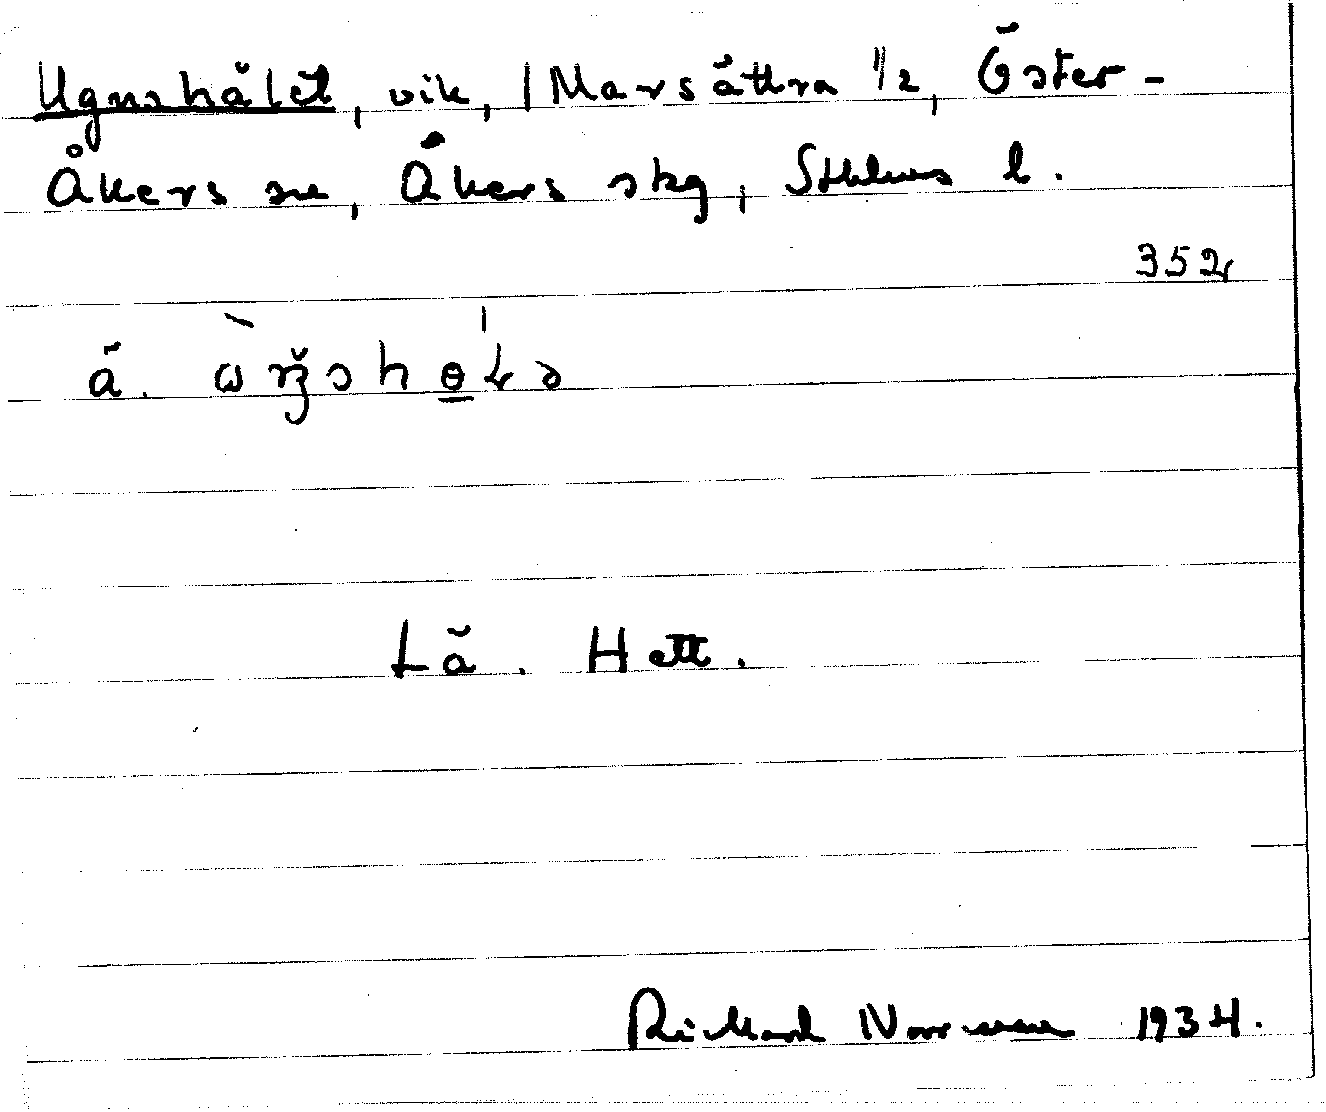 Ugnshålet, vik, Marsättra 1/2, Öster-
Åkers sn, Åkers skg, Sthlms l.
352
å.
Lä. Hett.
Rickard Norrman 1934.